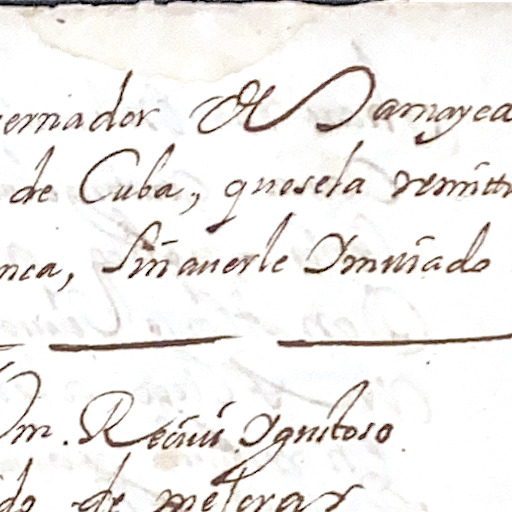 ernador de Jamayca
de Cuba, quesela remitti
nca, sin averle Ymviado
Om. Recivi Ygustoso
ido de melorar